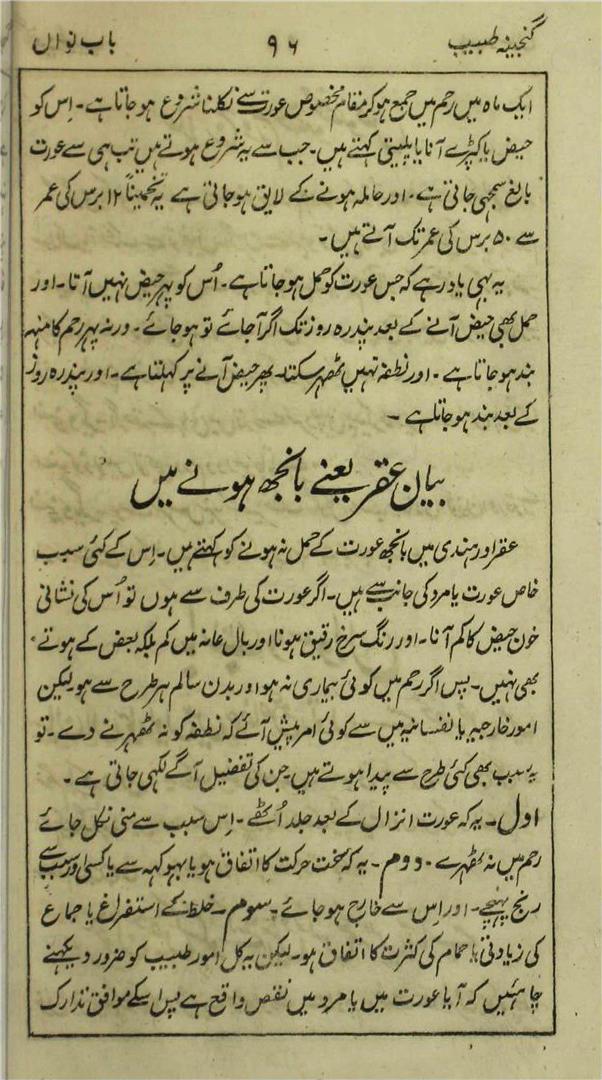 گنجینہ طبیب ۹۶ باب نواں
ایک ماہ میں رحم میں جمع ہوکر مقام مخصوص عورت سے نکلنا شروع ہوجاتا ہے۔ اِس کو
حیض یا کپڑے آنا یا پلیتی کہتے ہیں۔ جب سے یہ شروع ہوتے ہیں تب ہی سے عورت
بالغ سمجہی جاتی ہے۔ اور حاملہ ہونے کے لایق ہوجاتی ہے یہ تخمیناً ۱۲ برس کی عمر
سے ۵۰ برس کی عمر تک آتے ہیں۔
یہ بہی یاد رہے کہ جس عورت کو حمل ہوجاتا ہے۔ اُس کو پہر حیض نہیں آتا۔ اور
حمل بھی حیض آنے کے بعد پندرہ روز تک اگر آجائے تو ہوجائے۔ ورنہ پہر رحم کا منہہ
بند ہوجاتا ہے۔ اور نطفہ نہیں ٹھہر سکتا۔ پھر حیض آنے پر کہلتا ہے۔ اور پندرہ روز
کے بعد بند ہوجاتا ہے۔
بیان عقر یعنے بانجھ ہونے میں
عقر اور ہندی میں بانجھ عورت کے حمل نہ ہونے کو کہتے ہیں۔ اِس کے کئی سبب
خاص عورت یا مرد کی جانب سے ہیں۔ اگر عورت کی طرف سے ہوں تو اُس کی نشانی
خون حیض کا کم آنا۔ اور رنگ سرخ رقیق ہونا اور بال عانہ میں کم بلکہ بعض کے ہوتے
بھی نہیں۔ پس اگر رحم میں کوئی بیماری نہ ہو اور بدن سالم ہر طرح سے ہو لیکن
امور خارجیہ یا نفسانیہ میں سے کوئی امر پیش آئے کہ نطفہ کو نہ ٹھہرنے دے۔ تو
یہ سبب بھی کئی طرح سے پیدا ہوتے ہیں جن کی تفصیل آگے لکہی جاتی ہے۔
اول۔ یہ کہ عورت انزال کے بعد جلد اُٹھے۔ اِس سبب سے منی نکل جائے
رحم میں نہ ٹھہرے۔ دوم۔ یہ کہ سخت حرکت کا اتفاق ہو یا بہوکہہ سے یا کسی اور سبب سے
رنج پہنچے۔ اور اِس سے خارج ہوجائے۔ سوم۔ خلط کے استفراغ یا جماع
کی زیادتی یا حمام کی کثرت کا اتفاق ہو۔ لیکن یہ کل امور طبیب کو ضرور دیکہنے
چاہئیں کہ آیا عورت میں یا مرد میں نقص واقع ہے پس اسکے موافق تدارک